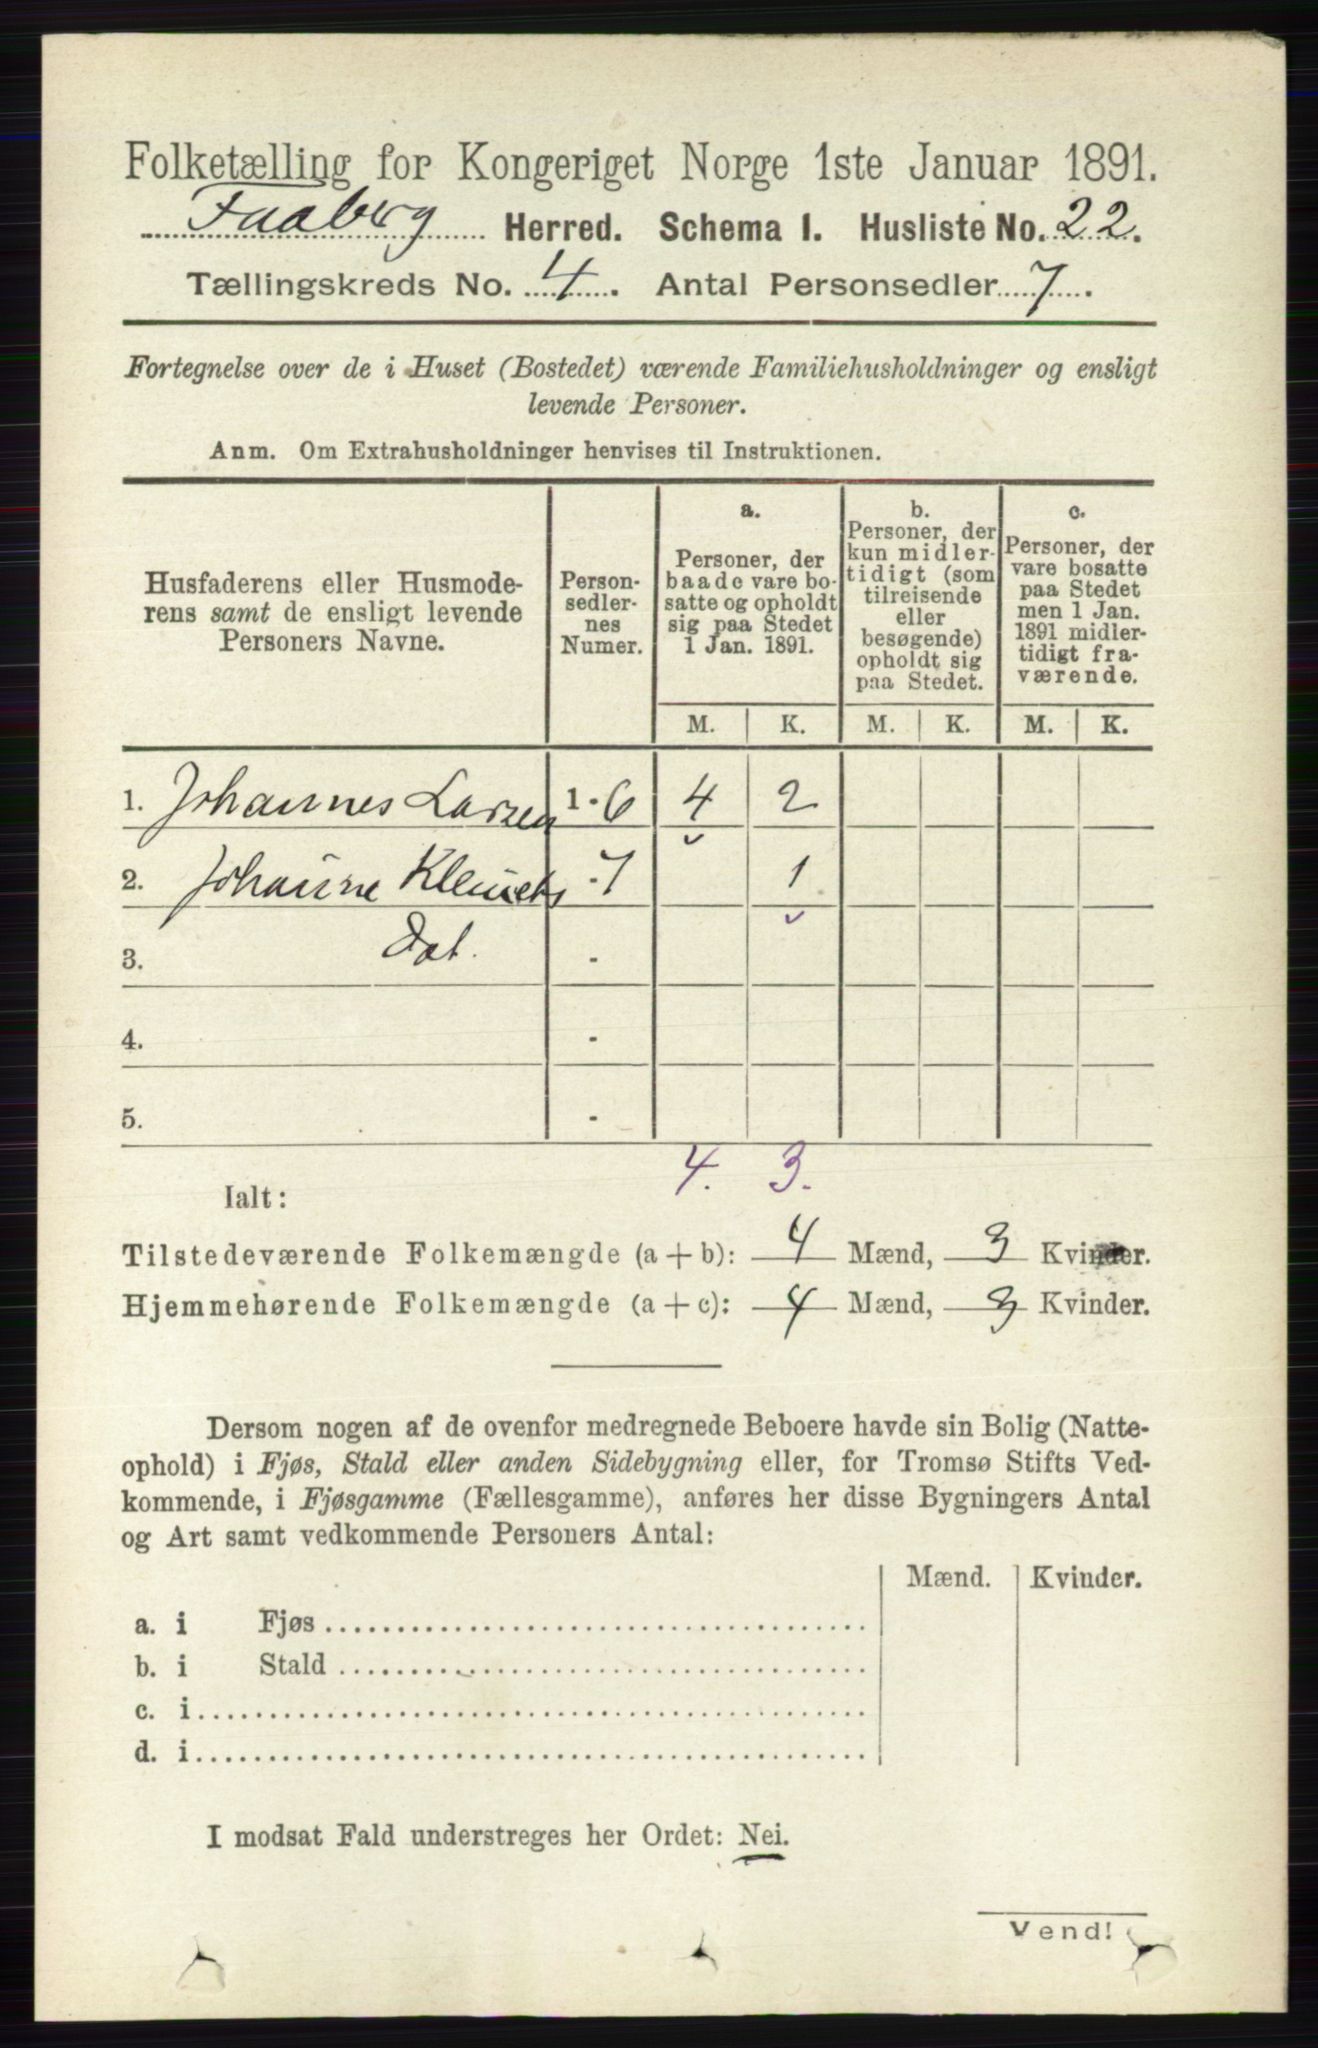 Folketælling for Kongeriget Norge 1ste Januar 1891.
Faaberg Herred. Schema 1. Husliste No. 22.
Tællingskreds No. 4. Antal Personsedler 7.
Fortegnelse over de i Huset (Bostedet) værende Familiehusholdninger og ensligt
levende Personer.
Anm. Om Extrahusholdninger henvises til Instruktionen.
Husfaderens eller Husmode-
rens samt de ensligt levende
Personers Navne.
Person-
sedler-
nes
Numer.
a.
Personer, der
baade vare bo-
satte og opholdt
sig paa Stedet
1 Jan. 1891.
b.
Personer, der
kun midler-
tidigt (som
tilreisende
eller
besøgende)
opholdt sig
paa Stedet.
c.
Personer, der
vare bosatte
paa Stedet
men 1 Jan.
1891 midler-
tidigt fra-
værende.
M. K. M. K. M. K.
1. Johannes Larsen 1 - 6 4 2
2. Johanne Klemets - 7 1
3. Dat. -
4. -
5. -
4. 3.
Ialt:
Tilstedeværende Folkemængde (a + b): 4 Mænd, 3 Kvinder.
Hjemmehørende Folkemængde (a + c): 4 Mænd, 3 Kvinder.
Dersom nogen af de ovenfor medregnede Beboere havde sin Bolig (Natte-
ophold) i Fjøs, Stald eller anden Sidebygning eller, for Tromsø Stifts Ved-
kommende, i Fjøsgamme (Fællesgamme), anføres her disse Bygningers Antal
og Art samt vedkommende Personers Antal:
Mænd. Kvinder.
a. i Fjøs
b. i Stald
c. i
d. i
I modsat Fald understreges her Ordet: Nei.
Vend!